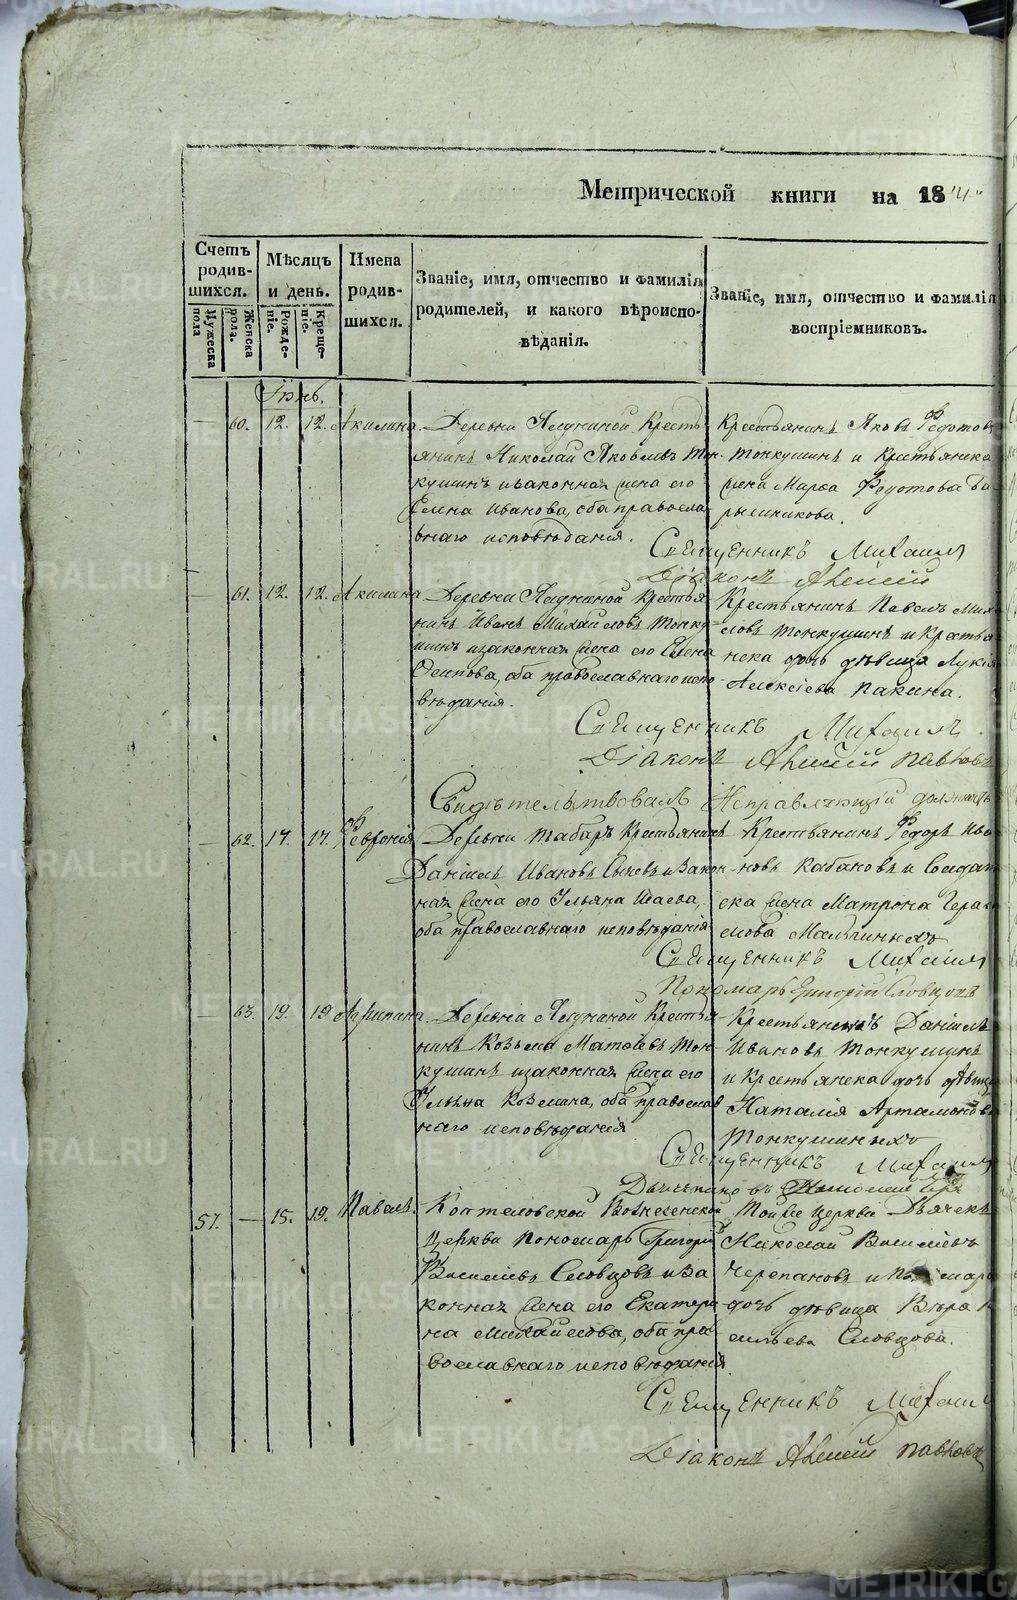 Метрической книги на 184
Счетъ родив-шихся.
Мужеска пола
Женска пола.
Мѣсяцъ и день.
Рожде-ніе.
Креще-ніе.
Имена родив-шихся.
Званіе, имя, отчество и фамилія
родителей, и какого вѣроиспо-
вѣданія.
Званіе, имя, отчество и фамилія
воспріемниковъ.
Іюнь.
— 60. 12. 12. Акилина.
Деревни Кресть-
янинъ Николай Яковлевъ Тон-
кушинъ и законная жена его
Елена Иванова, оба православ-
наго исповѣданія.
Крестьянинъ Яковъ Федотовъ
Тонкушинъ и Крестьянска
жена Марѳа Федотова Ба-
рышникова.
Священникъ Михаилъ
Діаконъ Алексій
— 61. 12. 12. Акилина
Деревни Крестья-
нинъ Иванъ Михайловъ Тонку-
шинъ и законная жена его Елена
Осипова, оба православнаго испо-
вѣданія.
Крестьянинъ Павелъ Миха
ловъ Тонкушинъ и Крестья-
нска дочь дѣвица Лукія
Алексіева Пакина.
Священникъ Михаилъ
Діаконъ Алексій Павловъ
Свидѣтельствовалъ Исправляющій должность
— 62. 17. 17. Февронія
Деревни Табаръ Крестьянинъ
Даніилъ Ивановъ и Закон-
ная жена его Ульяна Исаева,
оба Православнаго исповѣданія
Крестьянинъ Федоръ Ива
новъ Кабаковъ и Солдат
ска жена Матрона Гераси
мова Мальгиныхъ
Священникъ Михаилъ
Пономарь Григорій Словцовъ
— 63. 19. 19 Агрипина.
Деревни Крестья-
нинъ Козьма Матѳіевъ Тон-
кушинъ и законная жена его
Ульяна Козмина, оба православ
наго исповѣданія
Крестьянинъ Даніилъ
Ивановъ Тонкушинъ
и Крестьянска дочь дѣвица
Наталія Артамонова
Тонкушиныхъ
Священникъ Михаилъ
57. — 15. 19. Павелъ.
Вознесенской
Церкви Пономарь Григорій
Василіевъ Словцовъ и За
конная жена его Екатери-
на Михайлова, оба пра-
вославнаго исповѣданія.
Тойже Церкви Дьячекъ
Николай Василіевъ
Черепановъ и
дочь дѣвица Вѣра
сильева Словцова.
Священникъ Михаилъ
Діаконъ Алексій Павловъ
METRIKI.GASO-URAL.RU